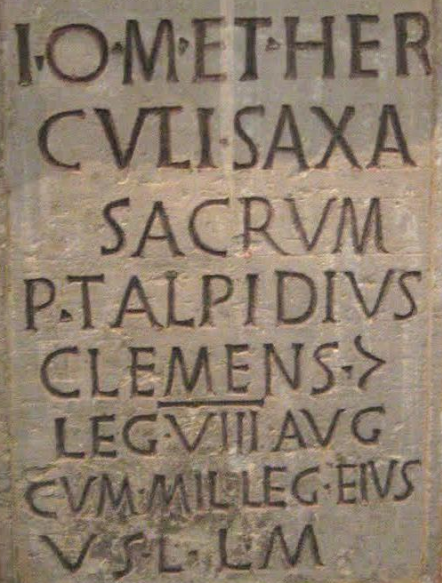 I·O·M·ET·HER
CVLI·SAXA
SACRVM
P·TALPIDIVS
CLEMENS·>
LEG·VIIII·AVG
CVM·MIL·LEG·EIVS
V S·L·L M